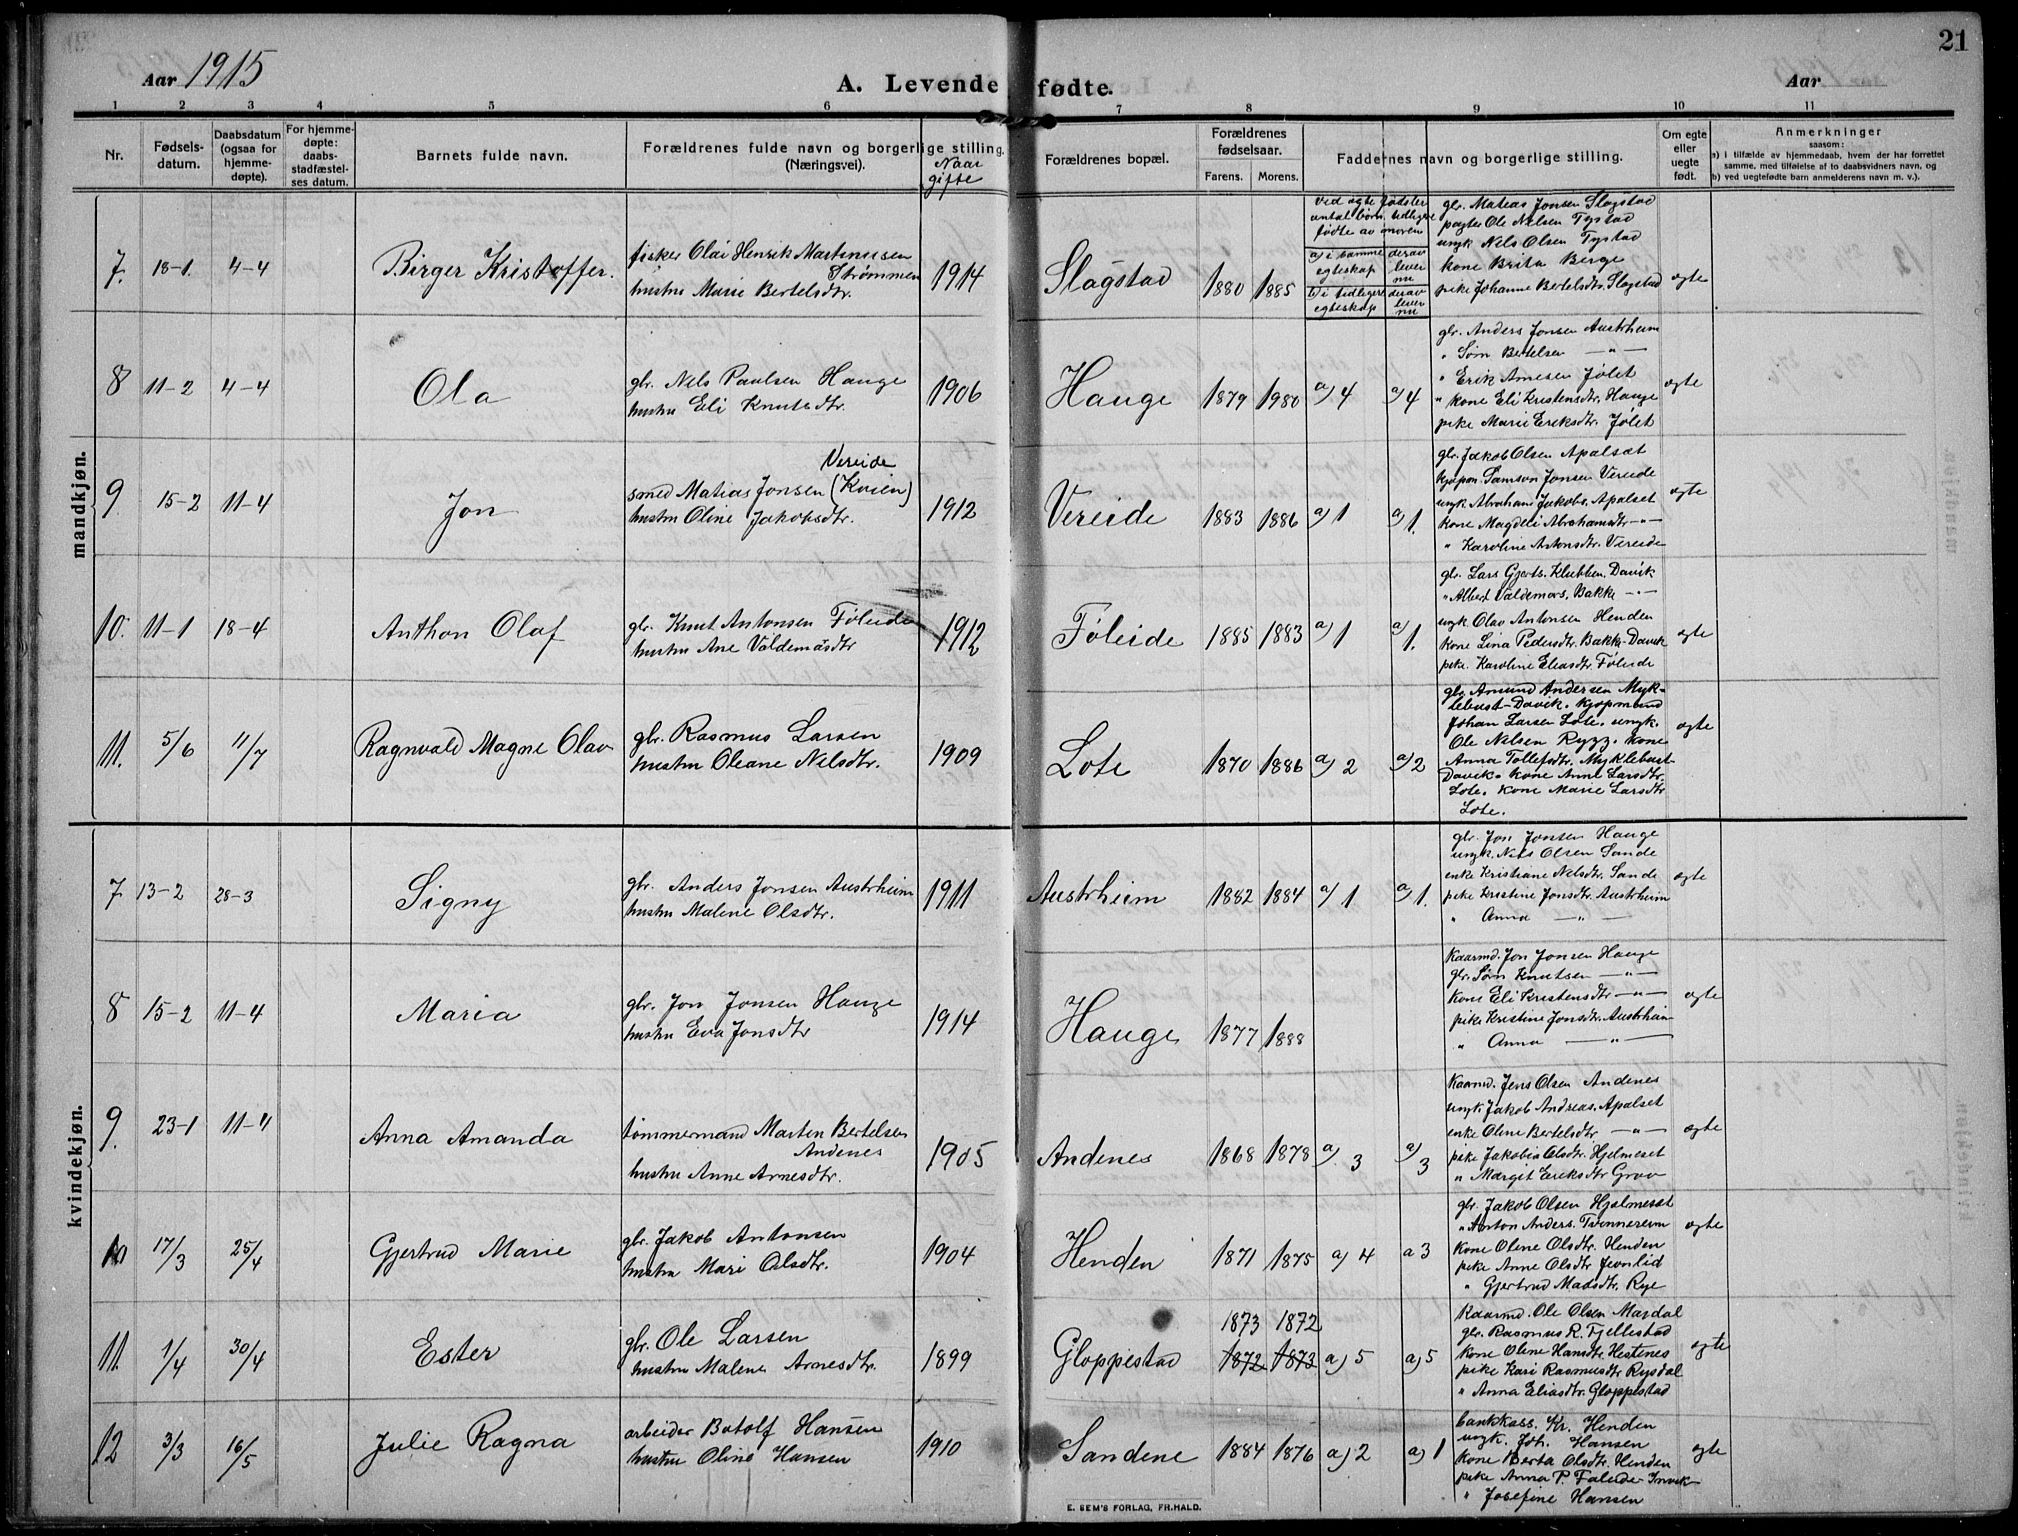 21
Aar 1915
A. Levende fødte.
Aar
1 2 3 4 5 6 7 8 9 10 11
Nr.
Fødsels-
datum.
Daabsdatum
(ogsaa for
hjemme-
døpte).
For hjemme-
døpte:
daabs-
stadfæstel-
ses datum.
Barnets fulde navn.
Forældrenes fulde navn og borgerlige stilling.
(Næringsvei).
Naar
gifte
Forældrenes bopæl.
Forældrenes
fødselsaar.
Farens. Morens.
Faddernes navn og borgerlige stilling.
Om egte
eller
uegte
født.
Anmerkninger
saasom:
a) i tilfælde av hjemmedaab, hvem der har forrettet
samme, med tilføielse af to daabsvidners navn, og
b) ved uegtefødte barn anmelderens navn m. v.).
ved egte fødsler
antal børn tidligere
fødte av moren
a) i samme
egteskap
derav
lever
nu
b) i tidligere
egteskap
derav
lever
nu
mandkjøn.
7. 18-1 4-4 Birger Kristoffer.
fisker Olai Henrik Martinussen
Strømmen
hustru Marie Bertelsdtr.
1914 Slagstad 1880 1885
gbr. Matias Jonsen Slagstad
pagter Ole Nilsen Tystad
ungk Nils Olsen Tystad
kone Brita Berge
pike Johanne Bertelsdtr. Slagstad
egte
8 11-2 4-4 Ola
gbr. Nils Paulsen Hauge
hustru Eli Knutsdtr.
1906 Hauge 1879 1980 a) 4 a) 4
gbr. Anders Jonsen Austrheim
" Søren Bertelsen — " —
" Erik Arnesen Jølet
" kone Eli Kristensdtr. Hauge
pike Marie Eriksdtr. Jølet
egte
9. 15-2 11-4 Jon
Vereide
smed Matias Jonsen (Kvien)
hustru Oline Jakobsdtr.
1912 Vereide 1883 1886 a) 1 a) 1.
gbr. Jakob Olsen Apalsæt
kjøpm. Samson Jonsen Vereide
ungk Abraham Jakobs. Apalset
kone Magdeli Abrahamsdtr — " —
" Karoline Antonsdtr. Vereide
egte
10. 11-1 18-4 Anthon Olaf
gbr. Knut Antonsen Føleide
hustru Ane Valdemarsdtr
1912 Føleide 1885 1883 a) 1 a) 1.
gbr. Lars Gjerts. Klubben. Davik
" Albert Valdemars. Bakke — " —
ungk Olav Antonsen Henden
kone Lina Pedersdtr. Bakke Davik
pike. Karoline Eliasdtr. Føleide
egte
11. 5/6 11/7 Ragnvald Magne Olav
gbr. Rasmus Larsen
hustru Oleane Nilsdtr.
1909 Lote 1870 1886 a) 2 a) 2
gbr. Amund Andersen Myk-
lebust-Davik. kjøpmand
Johan Larsen Lote. ungk.
Ole Nilsen Rygg. kone
Anna Tollefsdtr. Myklebust
Davik. kone Anne Larsdtr.
Lote. kone Marie Larsdtr
Lote.
egte
kvindekjøn.
7 13-2 28-3 Signy
gbr. Anders Jonsen Austrheim
hustru Malene Olsdtr.
1911 Austrheim 1882 1884 a) 1 a) 1.
gbr. Jon Jonsen Hauge
ungk. Nils Olsen Sande
enke Kristiane Nilsdtr. Sande
pike Kristine Jonsdtr. Austrheim
" Anna — " —
egte
8 15-2 11-4 Maria
gbr. Jon Jonsen Hauge
hustru Eva Jonsdtr
1914 Hauge 1877 1888
Kaarmd. Jon Jonsen Hauge
gbr. Søren Knutsen — " —
kone Eli Kristensdtr — " —
pike Kristine Jonsdtr. Austrheim
" Anna — " —
egte
9. 23-1 11-4 Anna Amanda
tømmermand Marten Bertelsen
Andenes
hustru Anne Arnesdtr.
1905 Andenes 1868 1878 a) 3 a) 3
Kaarmd. Jens Olsen Andenes
ungk Jakob Andreas. Apalset
enke Oline Bertelsdtr. — " —
pike Jakobia Olsdtr. Hjelmeset
" Margit Eriksdtr Grov
egte
10 17/3 25/4 Gjertrud Marie
gbr. Jakob Antonsen
hustru Mari Olsdtr.
1904 Henden 1871 1875 a) 4 a 3
gbr. Jakob Olsen Hjelmeset
" Anton Anders. Tvinnereim
kone Oline Olsdtr. Henden
pike Anne Olsdtr.
" Gjertrud Madsdtr. Rye
egte
11. 1/4 30/4 Ester
gbr. Ole Larsen
hustru Malene Arnesdtr.
1899 Gloppestad 1873 1872
1872 1873 a) 5 a) 5
Kaarmd. Ole Olsen Mardal
gbr. Rasmus R. Fjellestad
kone Oline Hansdtr. Hestenes
pike Kari Rasmusdtr Rygdal
" Anna Eliasdtr. Gloppestad
egte
12 3/3 16/5 Julie Ragna
arbeider Botolf Hansen
hustru Oline Hansen
1910 Sandene 1884 1876 a) 2 a) 1
bankkass. Kr. Henden
ungk. Joh. Hansen
kone Berta Olsdtr. Henden
pike Anna P. Faleide Invik
" Josefine Hansen
egte
E. SEM'S FORLAG, FR.HALD.